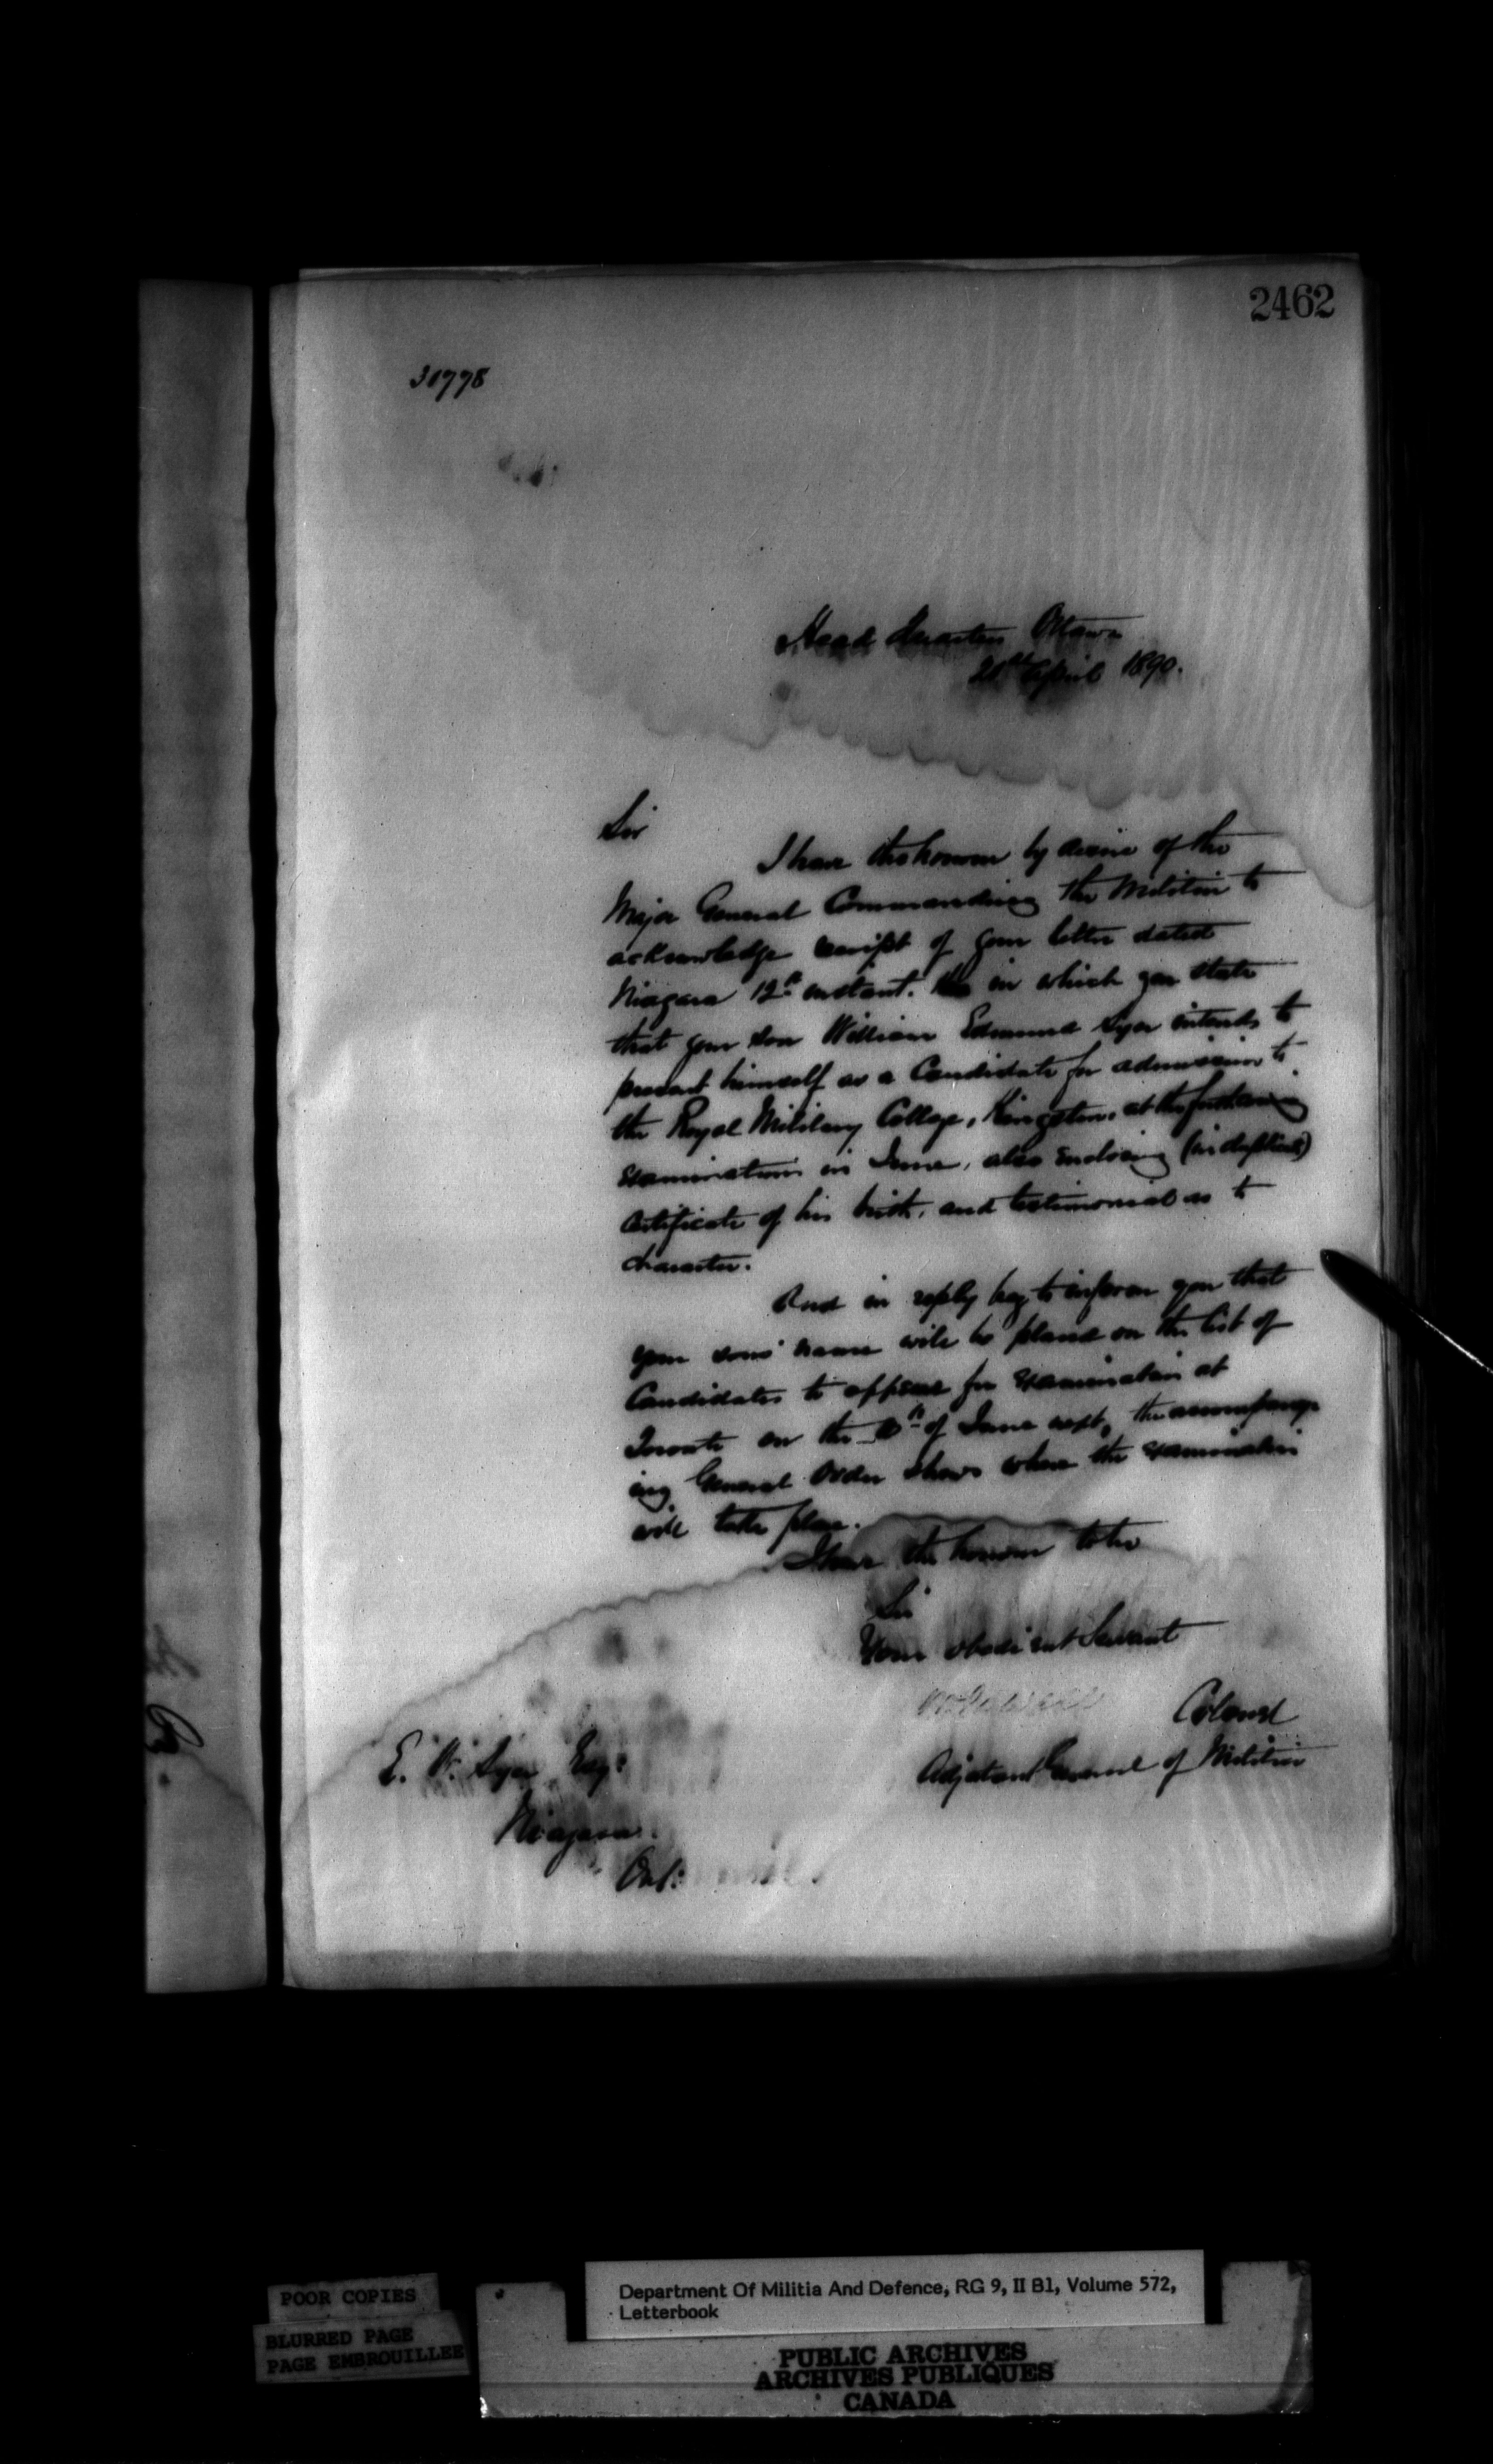 2462
30778
Head Quarters Ottawa
April 1890.
Sir
I have the honour by desire of the
Major General Commanding the Militia to
acknowledge receipt of your letter dated
Niagara 12th instant. in which you state
that your son William Edmund Syer intends to
present himself as a Candidate for admission to
the Royal Military College, Kingston, at the forthcoming
Examination in June, also enclosing (in duplicate)
Certificate of his birth, and testimonial as to
character.
And in reply beg to inform you that
your sons' name will be placed on the list of
Candidates to appear for examination at
Toronto on the of June next, the accompany-
ing General Order shows where the examination
will take place.
I have the honour to be
Sir
Your obedient Servant
Colonel
Adjutant General of Militia
E. Syer Esq:
Niagara.
Ont:
POOR COPIES
BLURRED PAGE
PAGE EMBROUILLEE
Department Of Militia And Defence, RG 9, II B1, Volume 572,
Letterbook
PUBLIC ARCHIVES
ARCHIVES PUBLIQUES
CANADA